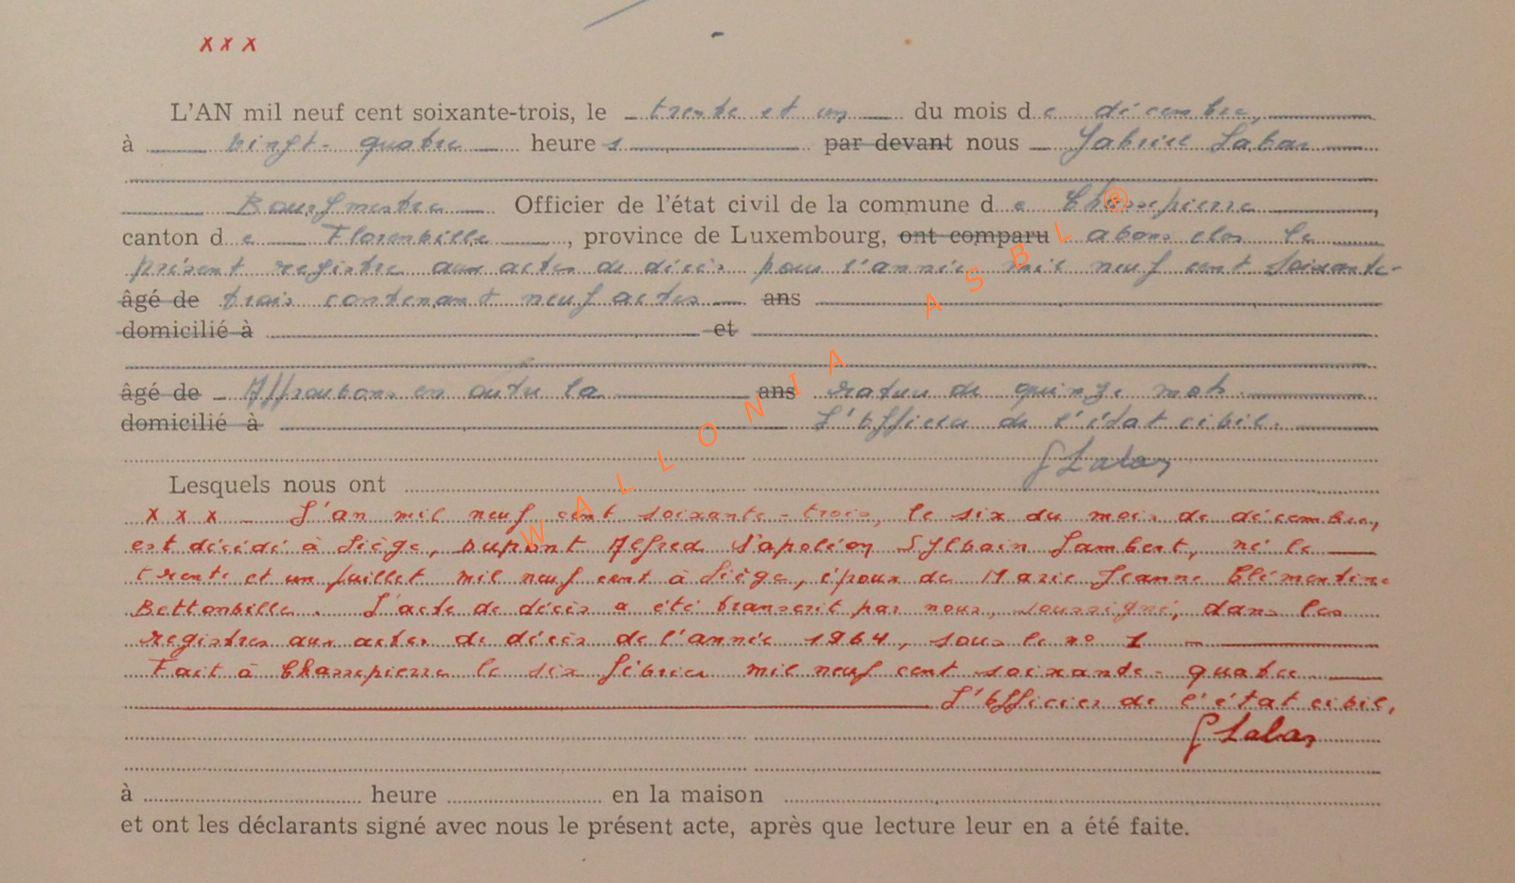 x x x
L'AN mil neuf cent soixante-trois, le trente et un du mois de décembre,
à vingt-quatre heures par devant nous Gabriel Labar
Bourgmestre Officier de l'état civil de la commune de Chassepierre,
canton de Florenville, province de Luxembourg, ont comparu avons clos le
présent registre aux actes de décès pour l'année mil neuf cent soixante-
âgé de trois contenant neuf actes ans
domicilié à et
âgé de Approuvons en outre la ans rature de quinze mots.
domicilié à L'Officier de l'état civil.
GLabar
Lesquels nous ont
x x x - L'an mil neuf cent soixante-trois, le six du mois de décembre,
est décédé à Liège, Dupont Alfred Napoléon Sylvain Lambert, né le
trente et un juillet mil neuf cent à Liège, époux de Marie Jeanne Clémentine
Bettonville. L'acte de décès a été transcrit par nous, soussigné, dans les
registres aux actes de décès de l'année 1964, sous le n° 1
Fait à Chassepierre le six février mil neuf cent soixante-quatre
L'Officier de l'état civil,
GLabar
à heure en la maison
et ont les déclarants signé avec nous le présent acte, après que lecture leur en a été faite.
WALLONIA ASBL ®